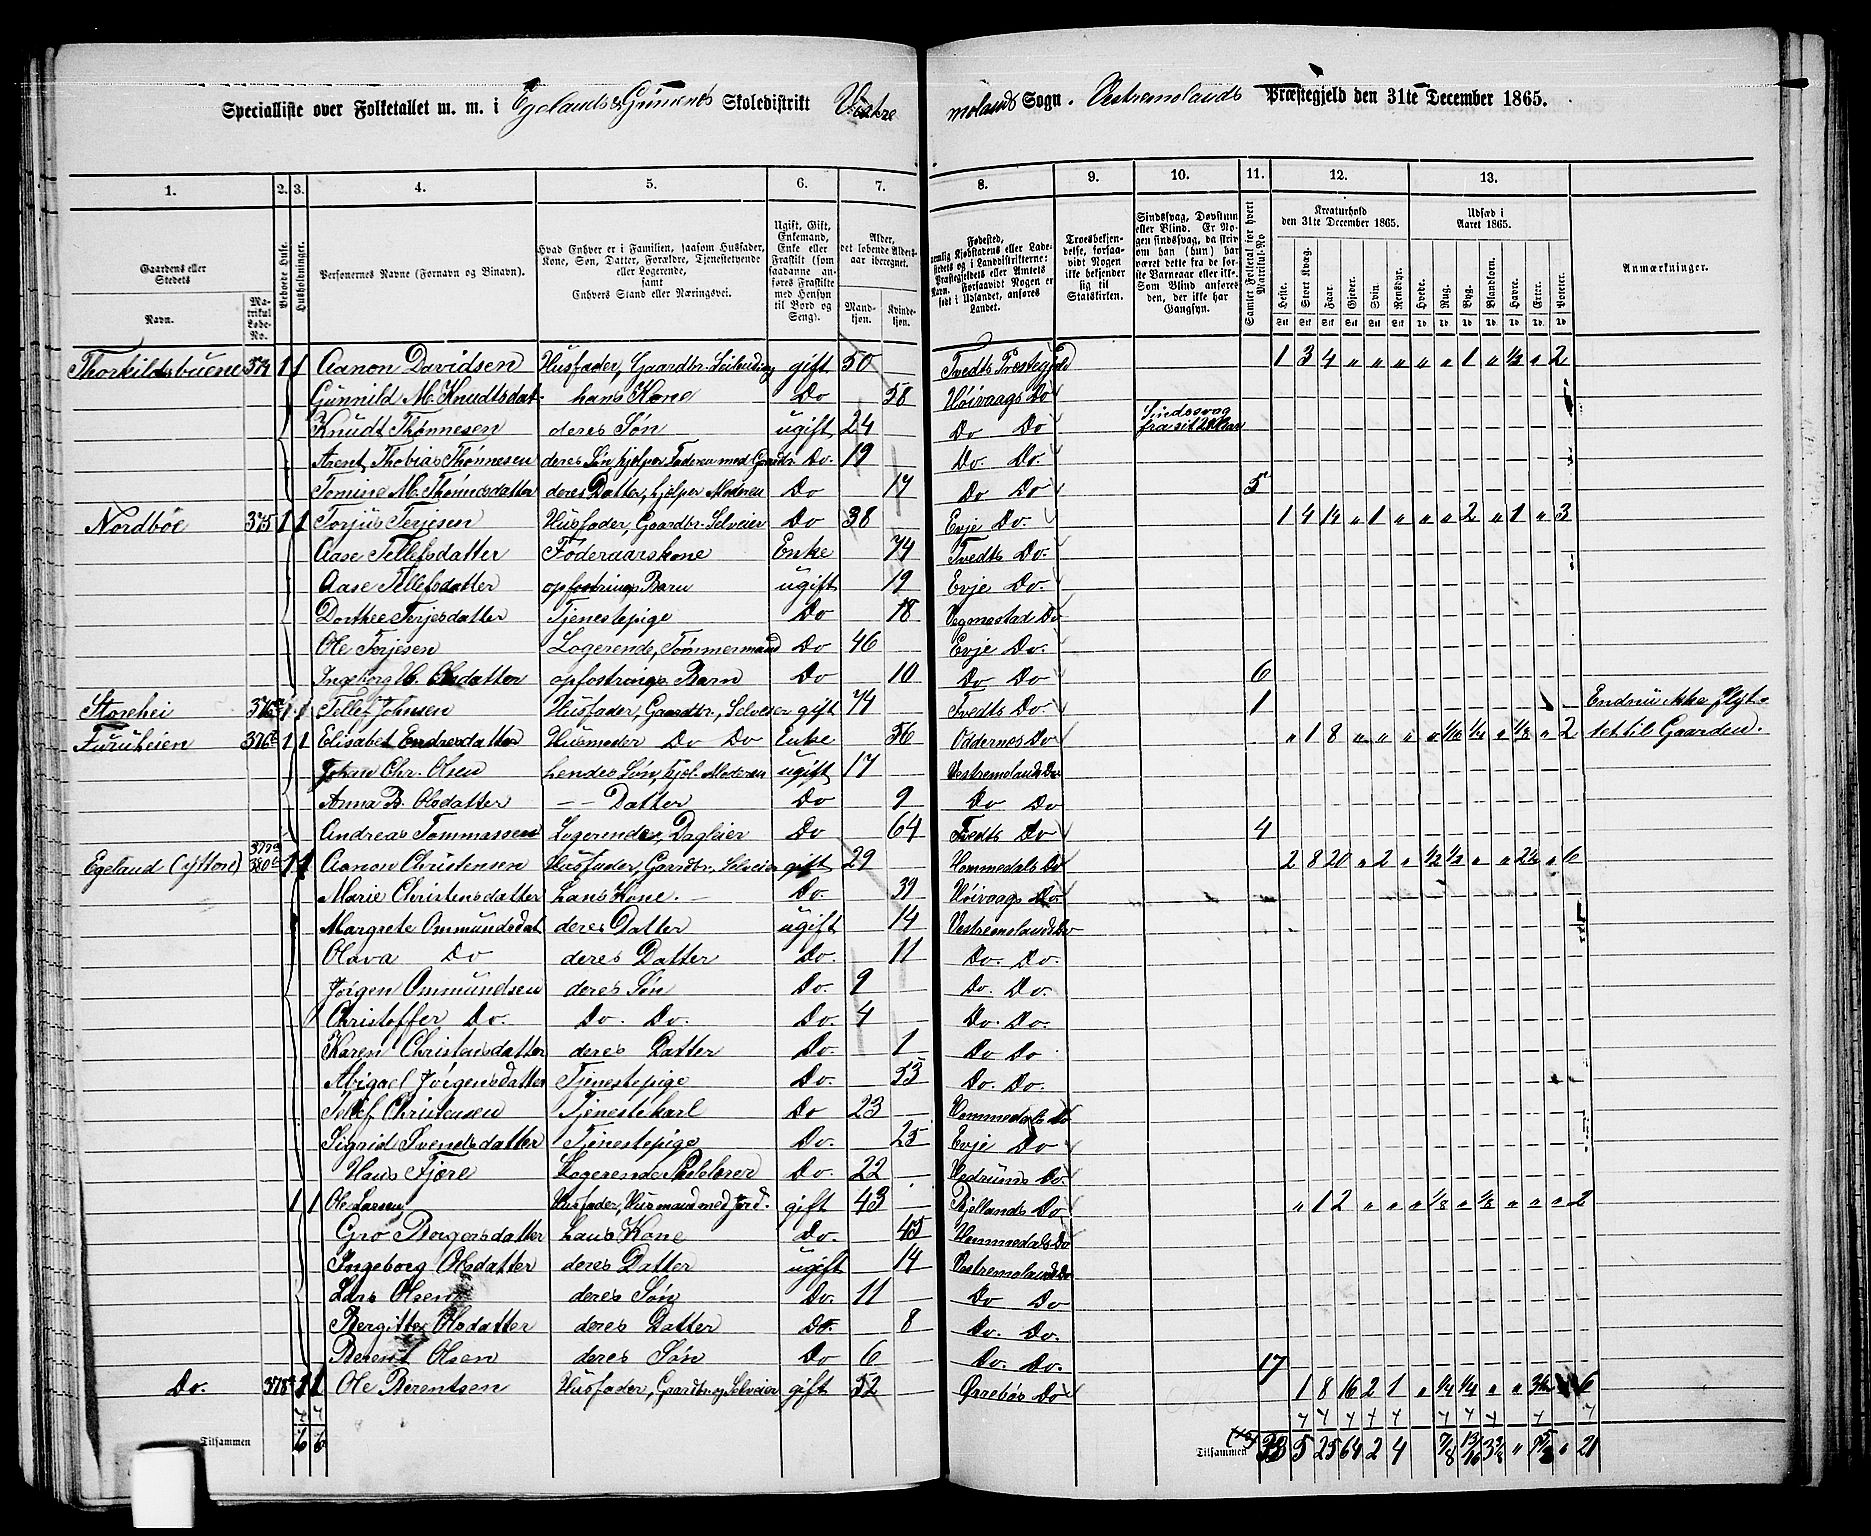 Specialliste over Folketallet m. m. i Egelands & Grimenes Skoledistrikt Vestre molands Sogn. Vestremolands Præstegjeld den 31te December 1865.
1. 2. 3. 4. 5. 6. 7. 8. 9. 10. 11. 12. 13.
Gaardens eller Stedets Navn. Matrikul Løbe-No. Beboede Huse. Husholdninger. Personernes Navne (Fornavn og Binavn). Hvad Enhver er i Familien, saasom Husfader, Kone, Søn, Datter, Forældre, Tjenestetyende eller Logerende, samt Enhvers Stand eller Næringsvei. Ugift, Gift, Enkemand, Enke eller Fraskilt (som saadanne anføres Fraskilte med Hensyn til Bord og Seng). Alder, det løbende Aldersaar iberegnet. Mandkjøn. Kvindekjøn. Troesbekjendelse, forsaavidt Nogen ikke bekjender sig til Statskirken. Sindssvag, Døvstum eller Blind. Samlet Folketal for hvert Matrikul-No Kreaturhold den 31te December 1865. Heste. Stort Kvæg. Faar. Gjeder. Svin. Rensdyr. Udsæd i Aaret 1865. Hvede. Rug. Byg. Blandkorn. Havre. Erter. Poteter. Anmærkninger.
Thorkildsbuene 374 1 1 Aanon Davidsen Husfader, Gaardbr. Leilending gift 50 Tvedts Præstegjeld 1 3 4 " " " " " 1 " ½ " 2
Gunnild M. Knudtsdat. hans Kone Do 58 Høivaags Do
Knudt Thønnesen deres Søn ugift 24 Do Do Sindssvag fra sit
Arent Thobias Thønnesen deres Søn, hjelper Faderen med Gaardbr. Do. 19 Do. Do.
Tomine M. Thønnesdatter deres Datter, hjelper Moderen Do 17 Do Do 5
Nordbøe 375 1 1 Torjus Terjesen Husfader, Gaardbr. Selveier Do 38 Evje Do. 1 4 14 " 1 " " " 2 " 1 " 3
Aase Tellefsdatter Føderaadskone Enke 74 Tvedts Do.
Aase Tellefsdatter opfostrings Barn ugift 19 Evje Do.
Dorthee Terjesdatter Tjenestepige Do 18 Vegmestad Do
Ole Terjesen Logerende, Tømmermand Do 46 Evje Do.
Ingeborg H. Olsdatter opfostrings Barn Do 10 Do Do 6
Storehei 376 1 1 Tellef Johnsen Husfader, Gaardbr., Selveier gift 74 Tvedts Do. 1 Endnu ikke flyt-
Furuheien 376 1 1 Elisabet Endresdatter Husmoder Do Do Enke 56 Oddernes Do " 1 8 " " " " 1/16 ¼ " ⅛ " 2 tet til Gaarden.
Johan Chr. Olsen hendes Søn, hjel. Moderen ugift 17 Vestremolands Do
Anna B. Olsdatter -- Datter Do 9 Do Do
Andreas Tommassen Logerende, Dagleier Do 64 Tvedts Do 4
Egeland (yttre) 377 380 1 1 Aanon Christensen Husfader, Gaardbr. Selveier gift 29 Hommedals Do 2 8 20 " 2 " ½ ½ " " 2½ " 6
Marie Christensdatter hans Kone. Do. 39 Høivaags Do.
Margrete Ommundsdat deres Datter ugift 14 Vestremoland Do
Olava Do deres Datter Do. 11 Do. Do.
Jørgen Ommundsen deres Søn Do. 9 Do. Do.
Christoffer Do. Do. Do. Do. 4 Do. Do.
Karen Christensdatter deres Datter Do. 1 Do Do
Abigael Jørgensdatter Tjenestepige Do. 53 Do. Do.
Tellef Christensen Tjenestekarl Do 23 Hommedals Do
Sigrid Svendsdatter Tjenestepige Do. 25 Evje Do
Hans Fjære Logerende Do. 22 Do.
1 1 Ole Larsen Husfader, Husmand med Jord. gift 43 Bjellands Do " 1 2 " " " " ⅛ " ⅛ " " " 2
Gro Borgersdatter hans Kone Do. 45 Hommedals Do
Ingeborg Olsdatter deres Datter ugift 14 Vestremoland Do
Lars Olsen deres Søn Do. 11 Do Do
Bergitte Olsdatter deres Datter Do. 8 Do. Do.
Berent Olsen deres Søn Do 6 Do. Do. 17
Do. 378 1 1 Ole Berentsen Husfader, Gaardbr. og Selveier gift 52 Do 1 8 16 2 1 " ¼ ¼ " " 3½ 6
Tilsammen 6 6 Tilsammen 33 5 25 64 2 4 7/8 13/16 " " 21